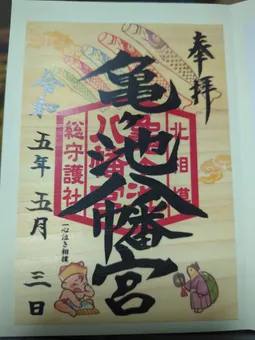 奉拝
亀ヶ池八幡宮
北相模
総守護社
令和
五年五月三日
一心泣き相撲